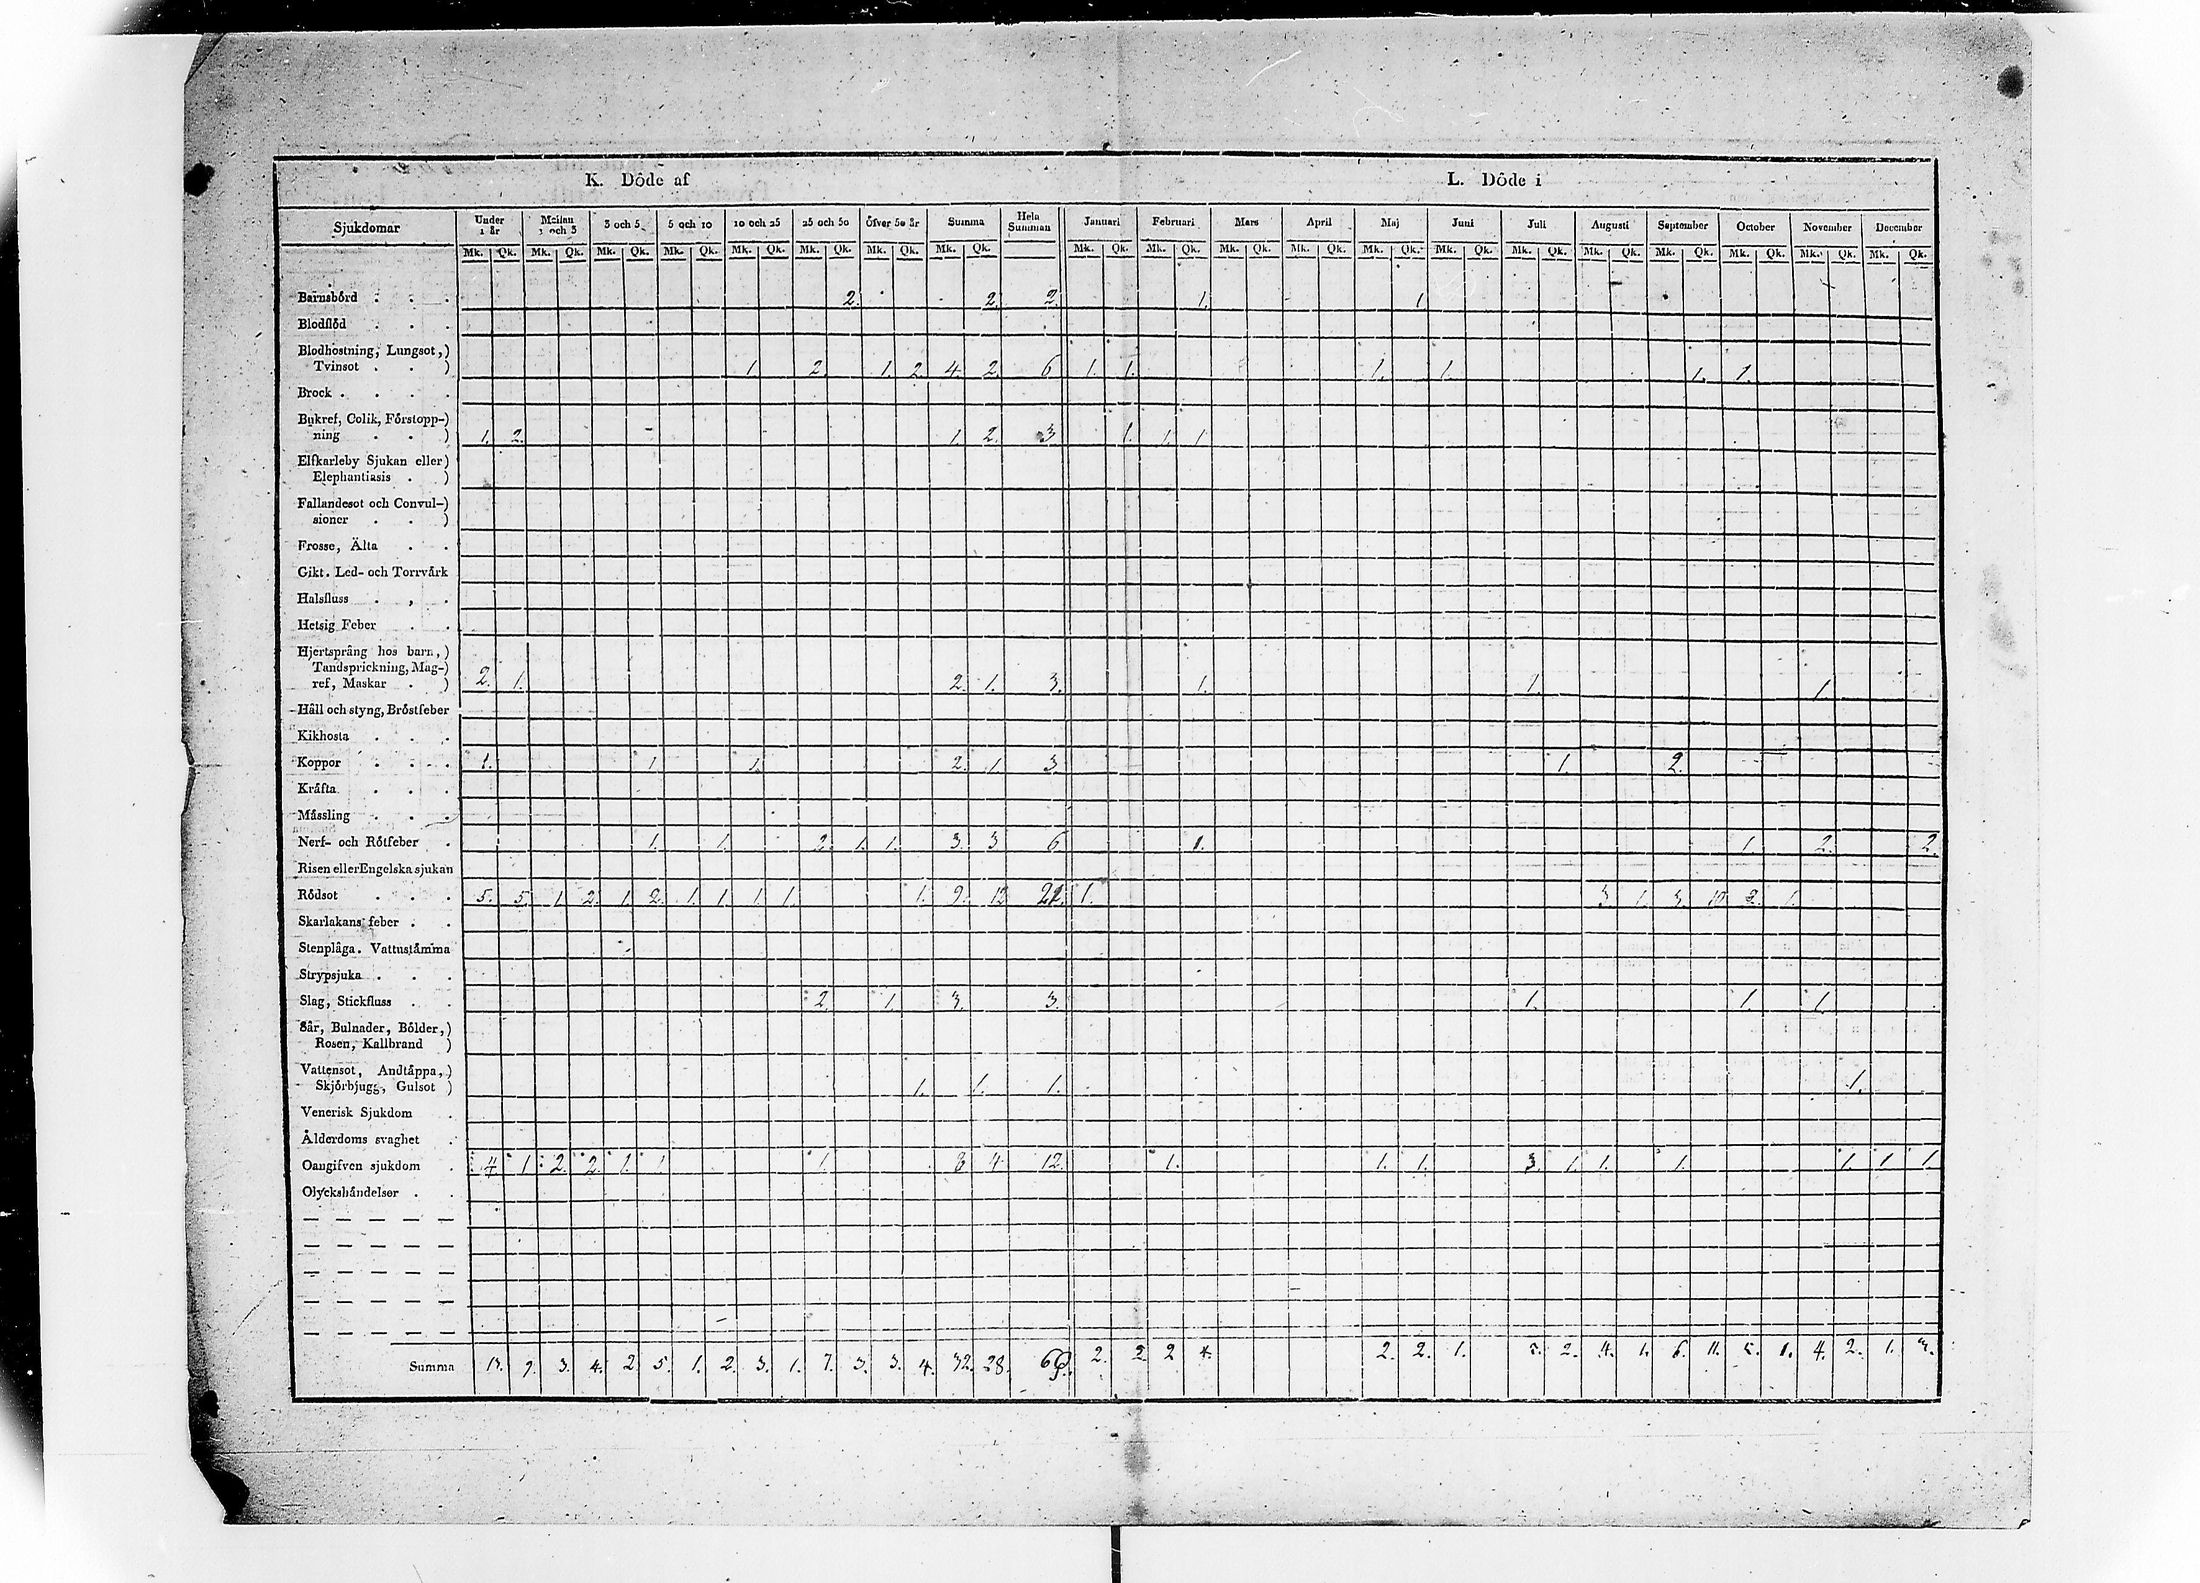 K. Dôde af L. Dôde i
Sjukdomar Under 1 år Mellan 1 och 3 3 och 5 5 och 10 10 och 25 25 och 50 Öfver 50 år Summa Hela Summan Januari Februari Mars April Maj Juni Juli Augusti September October November December
Mk. Qk. Mk. Qk. Mk. Qk. Mk. Qk. Mk. Qk. Mk. Qk. Mk. Qk. Mk. Qk. Mk. Qk. Mk. Qk. Mk. Qk. Mk. Qk. Mk. Qk. Mk. Qk. Mk. Qk. Mk. Qk. Mk. Qk. Mk. Qk. Mk. Qk. Mk. Qk.
Barnsbôrd . . . 2. 2. 2. 1. 1.
Blodflôd . . .
Blodhostning, Lungsot,)
Tvinsot . . ) 1. 2. 1. 2. 4. 2. 6. 1. 1. 1. 1. 1. 1.
Brock . . . .
Bukref, Colik, Fôrstopp-)
ning . . ) 1. 2. 1. 2. 3 1. 1. 1.
Elfkarleby Sjukan eller)
Elephantiasis . )
Fallandesot och Convul-)
sioner . . )
Frosse, Älta . .
Gikt. Led- och Torrvårk
Halsfluss . , .
Hetsig Feber . .
Hjertsprång hos barn,)
Tandsprickning, Mag-)
ref, Maskar . ) 2. 1. 2. 1. 3. 1. 1. 1.
Håll och styng, Brôstfeber
Kikhosta . . .
Koppor . . . 1. 1. 1. 2. 1. 3. 1. 2.
Kråfta . . .
Måssling . . .
Nerf- och Rôtfeber . 1. 1. 2. 1. 1. 3. 3 6. 1. 1. 2. 2.
Risen eller Engelska sjukan
Rôdsot . . . 5. 5. 1. 2. 1. 2. 1. 1. 1. 1. 1. 9. 12 21. 1. 3. 1. 3. 10. 2. 1.
Skarlakans feber . .
Stenplåga. Vattuståmma
Strypsjuka . . .
Slag, Stickfluss . . 2. 1. 3. 3. 1. 1. 1.
Sår, Bulnader, Bôlder,)
Rosen, Kallbrand )
Vattensot, Andtåppa,)
Skjôrbjugg, Gulsot ) 1. 1. 1. 1.
Venerisk Sjukdom .
Ålderdoms svaghet .
Oangifven sjukdom . 4 1 2. 2. 1. 1 1. 8 4. 12. 1. 1. 1. 3. 1. 1. 1. 1. 1. 1.
Olyckshåndelser . .
Summa 13. 9. 3. 4. 2 5. 1. 2. 3. 1. 7. 3. 3. 4. 32. 28. 60. 2. 2. 2 4. 2. 2. 1. 5. 2. 4. 1. 6. 11. 5. 1. 4. 2. 1. 3.